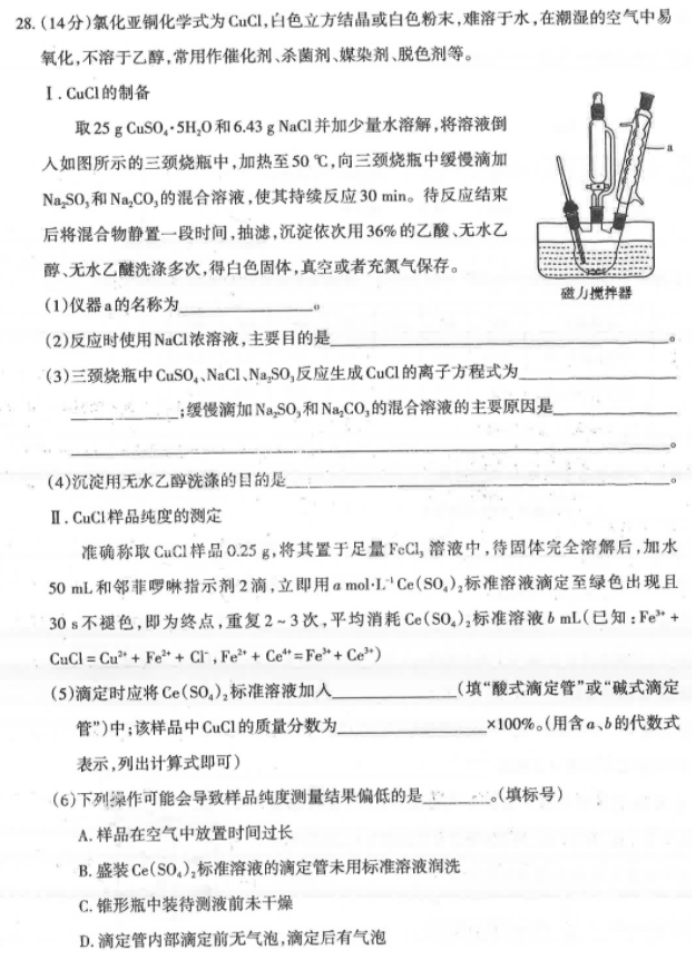 28.(14分)氯化亚铜化学式为CuCl,白色立方结晶或白色粉末,难溶于水,在潮湿的空气中易
氧化,不溶于乙醇,常用作催化剂、杀菌剂、媒染剂、脱色剂等。
Ⅰ.CuCl的制备
取25 g CuSO₄·5H₂O和6.43 g NaCl并加少量水溶解,将溶液倒
入如图所示的三颈烧瓶中,加热至50 ℃,向三颈烧瓶中缓慢滴加
Na₂SO₃和Na₂CO₃的混合溶液,使其持续反应30 min。待反应结束
后将混合物静置一段时间,抽滤,沉淀依次用36%的乙酸、无水乙
醇、无水乙醚洗涤多次,得白色固体,真空或者充氮气保存。
a
磁力搅拌器
(1)仪器a的名称为____________。
(2)反应时使用NaCl浓溶液,主要目的是____________。
(3)三颈烧瓶中CuSO₄、NaCl、Na₂SO₃反应生成CuCl的离子方程式为____________
____________;缓慢滴加Na₂SO₃和Na₂CO₃的混合溶液的主要原因是____________
____________。
(4)沉淀用无水乙醇洗涤的目的是____________。
Ⅱ.CuCl样品纯度的测定
准确称取CuCl样品0.25 g,将其置于足量FeCl₃溶液中,待固体完全溶解后,加水
50 mL和邻菲啰啉指示剂2滴,立即用a mol·L⁻¹ Ce(SO₄)₂标准溶液滴定至绿色出现且
30 s不褪色,即为终点,重复2~3次,平均消耗Ce(SO₄)₂标准溶液b mL(已知:Fe³⁺+
CuCl=Cu²⁺+Fe²⁺+Cl⁻,Fe²⁺+Ce⁴⁺=Fe³⁺+Ce³⁺)
(5)滴定时应将Ce(SO₄)₂标准溶液加入____________(填“酸式滴定管”或“碱式滴定
管”)中;该样品中CuCl的质量分数为____________×100%。(用含a、b的代数式
表示,列出计算式即可)
(6)下列操作可能会导致样品纯度测量结果偏低的是______。(填标号)
A.样品在空气中放置时间过长
B.盛装Ce(SO₄)₂标准溶液的滴定管未用标准溶液润洗
C.锥形瓶中装待测液前未干燥
D.滴定管内部滴定前无气泡,滴定后有气泡